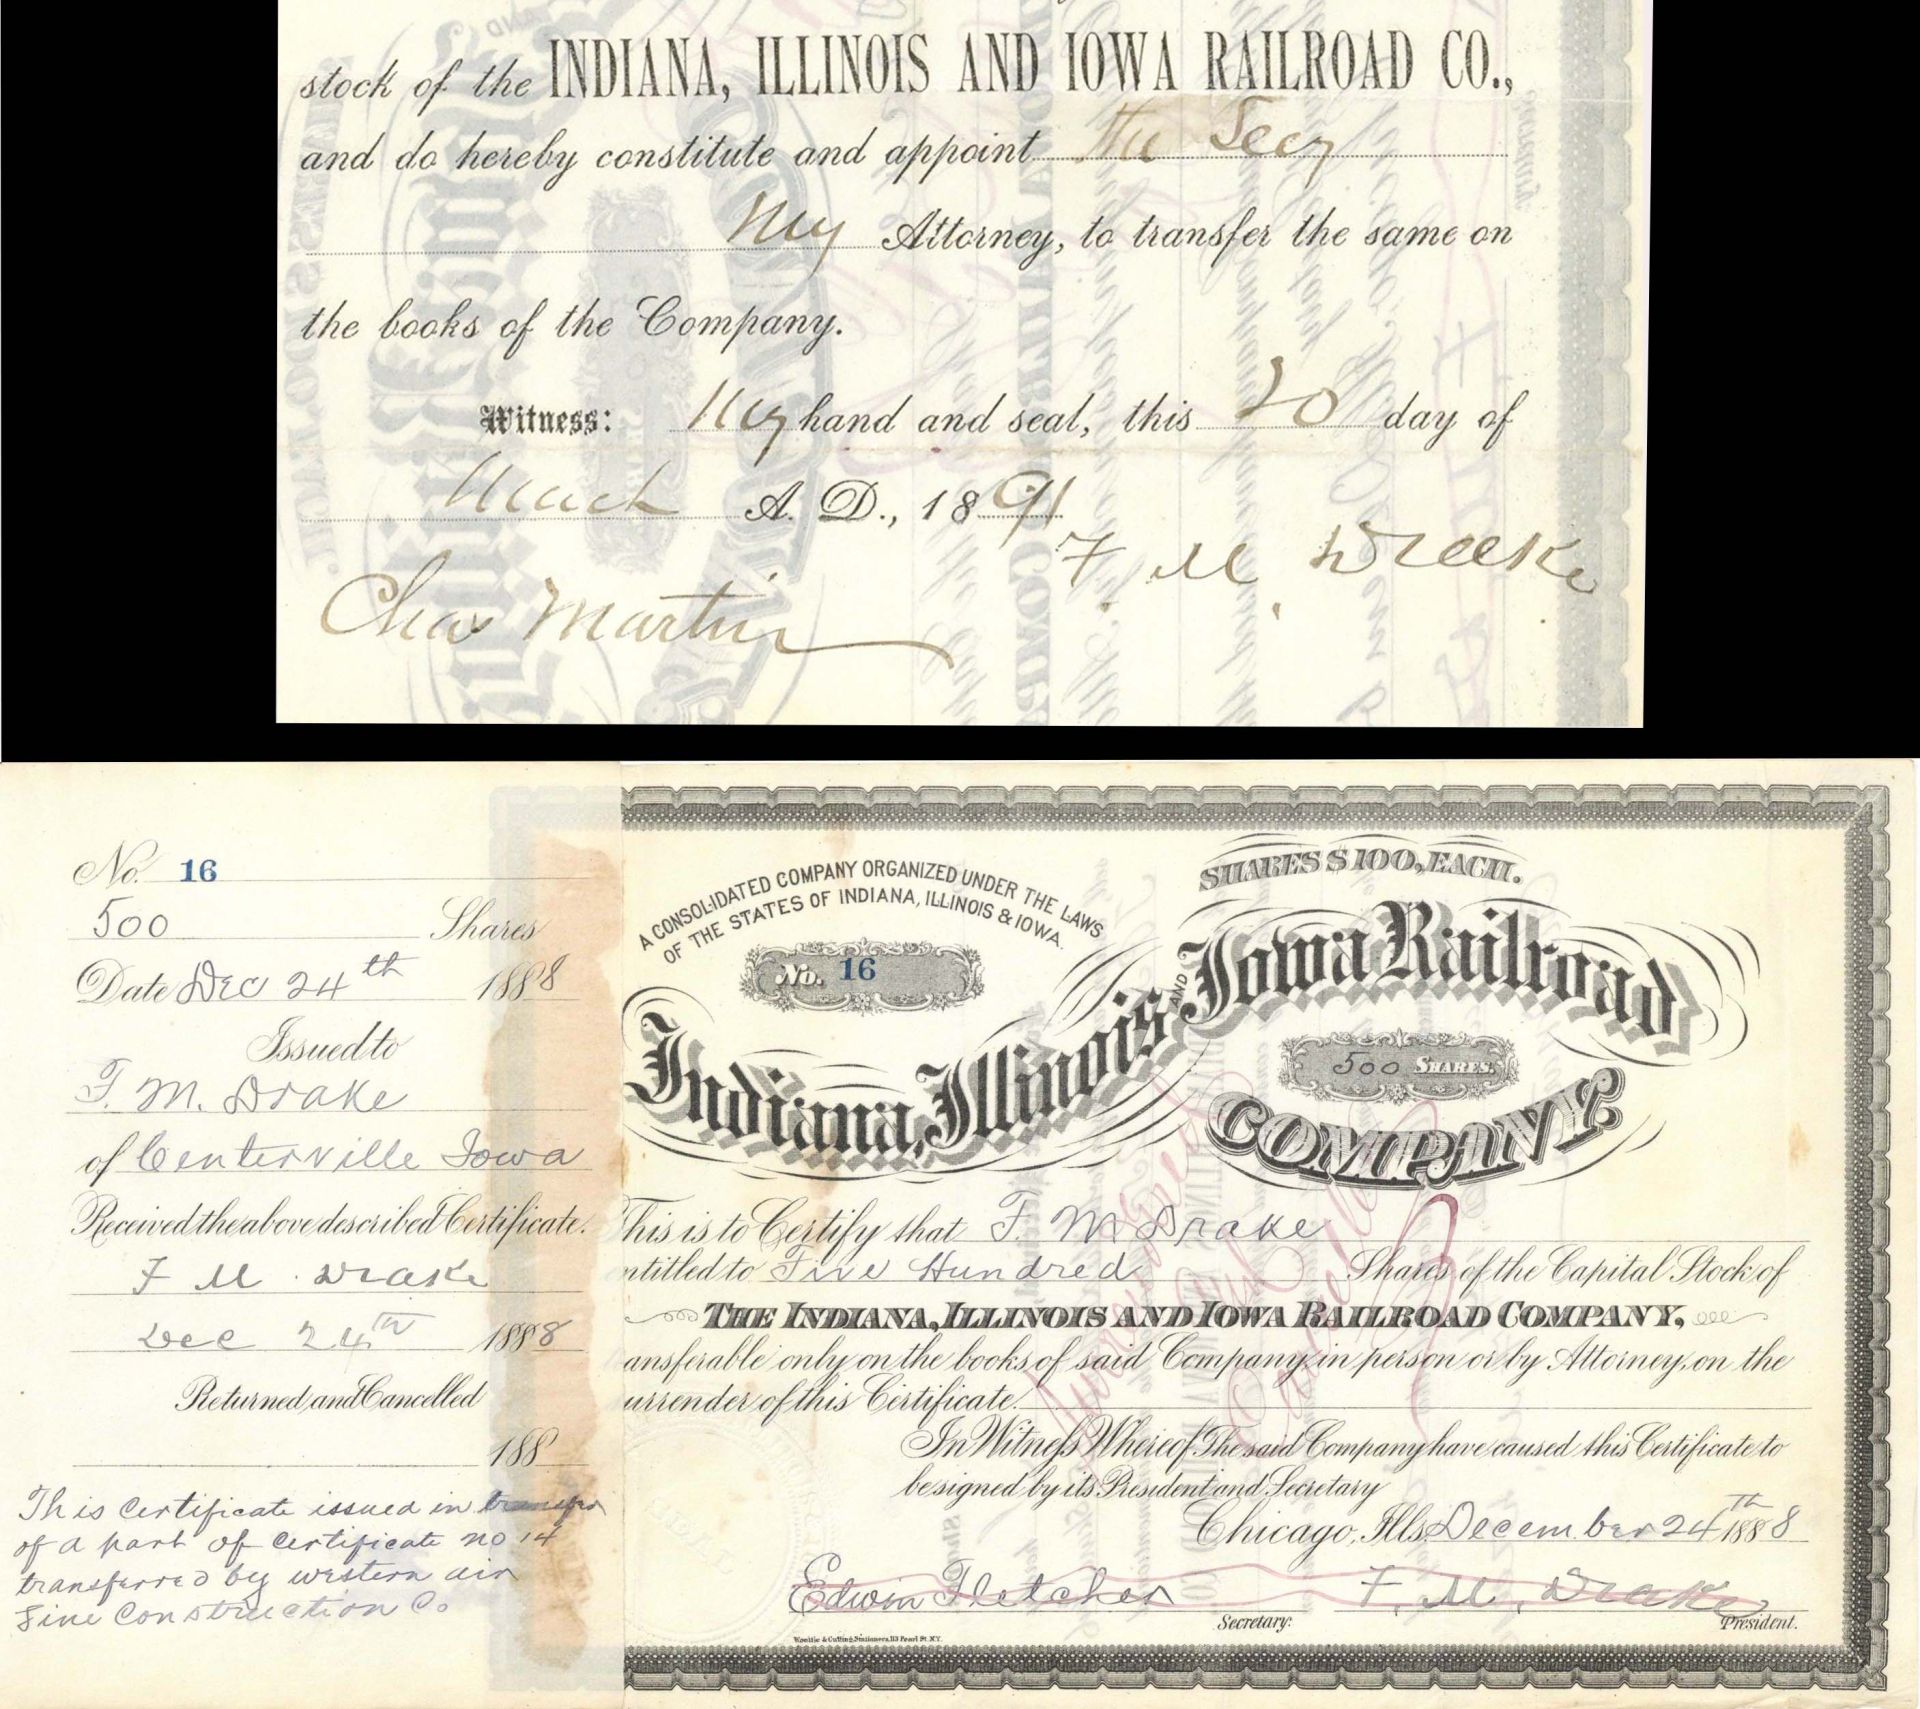 stock of the INDIANA, ILLINOIS AND IOWA RAILROAD CO.,
and do hereby constitute and appoint The Secy
My Attorney, to transfer the same on
the books of the Company.
Witness: My hand and seal, this 20 day of
March A. D., 1891
F. M. Drake
Chas Martin
No. 16
500 Shares
Date Dec 24th 1888
Issued to
F. M. Drake
of Centerville Iowa
Received the above described Certificate.
F M. Drake
Dec 24th 1888
Returned and Cancelled
188
This Certificate issued in transfer
of a part of Certificate no 14
transferred by western air
Line Construction Co
A CONSOLIDATED COMPANY ORGANIZED UNDER THE LAWS
OF THE STATES OF INDIANA, ILLINOIS & IOWA.
No. 16
SHARES $100, EACH.
Indiana, Illinois AND Iowa Railroad
500 SHARES.
COMPANY.
This is to Certify that F. M Drake
ntitled to Five Hundred Shares of the Capital Stock of
THE INDIANA, ILLINOIS AND IOWA RAILROAD COMPANY,
ansferable only on the books of said Company, in person or by Attorney, on the
urrender of this Certificate.
In Witness Whereof, The said Company have caused this Certificate to
be signed by its President and Secretary
Chicago, Ills. December 24th 1888
Edwin Fletcher
Secretary.
F. M. Drake
President.
113 Pearl St. N.Y.